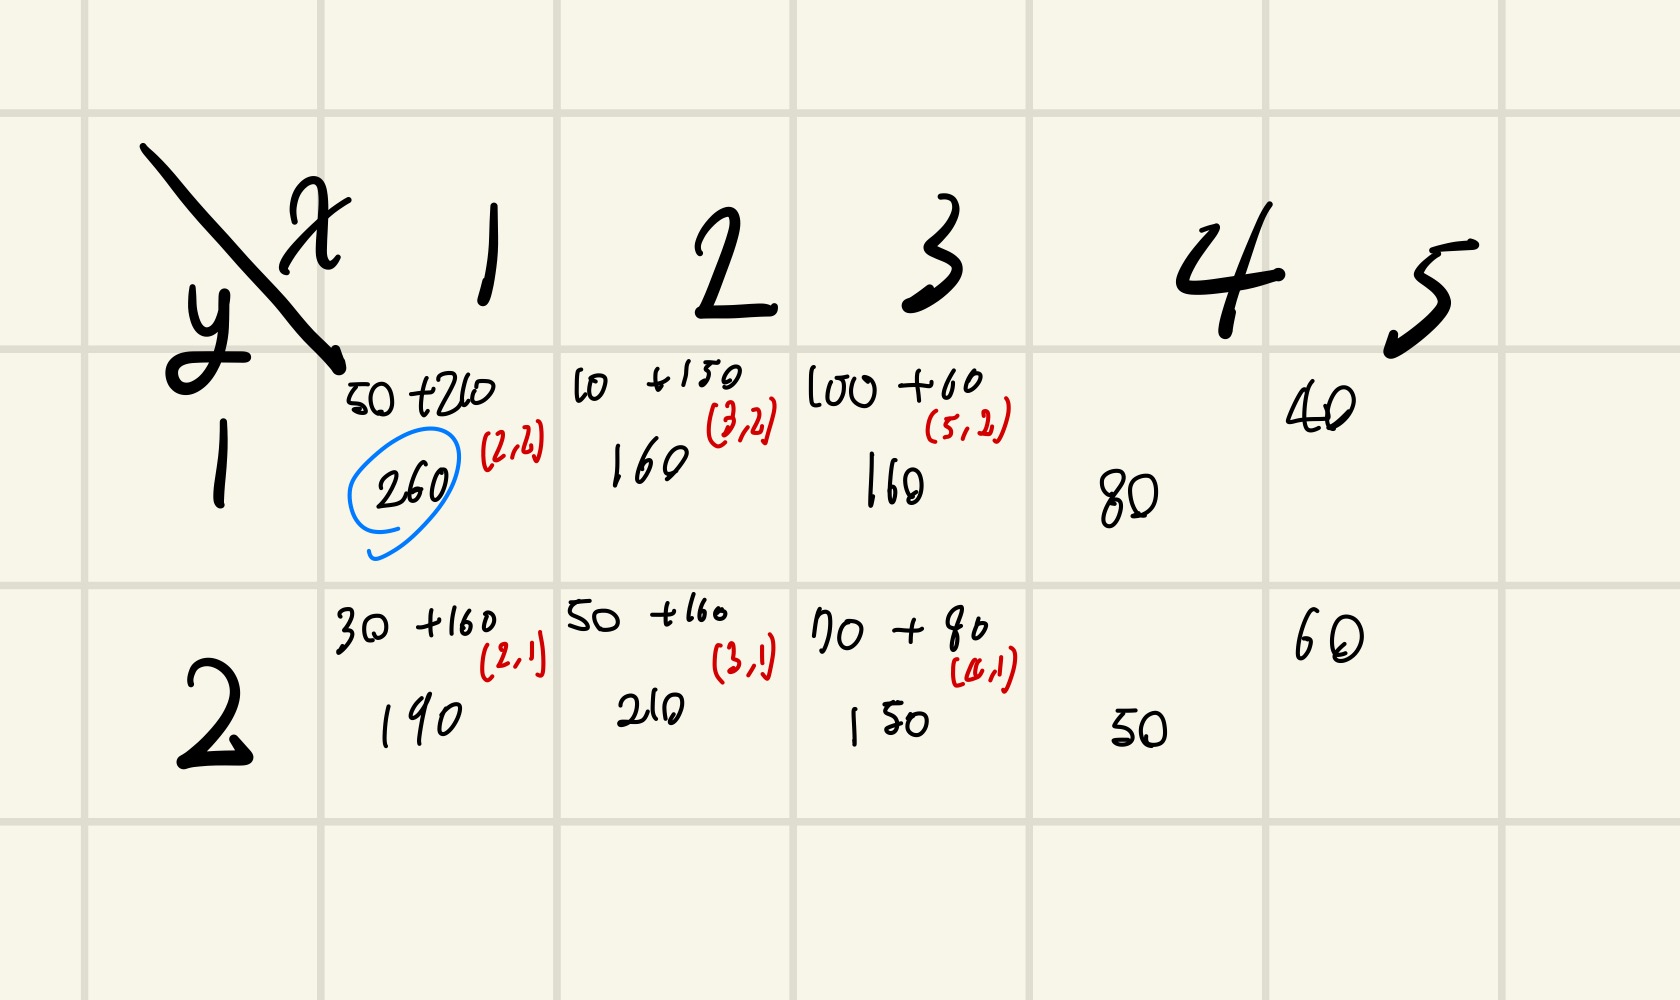 x 1 2 3 4 5
y
1 50 +210 10 +150 100 +60 40
(2,2) (3,2) (5,2)
260 160 160 80
2 30 +160 50 +160 70 + 80 60
(2,1) (3,1) (4,1)
190 210 150 50